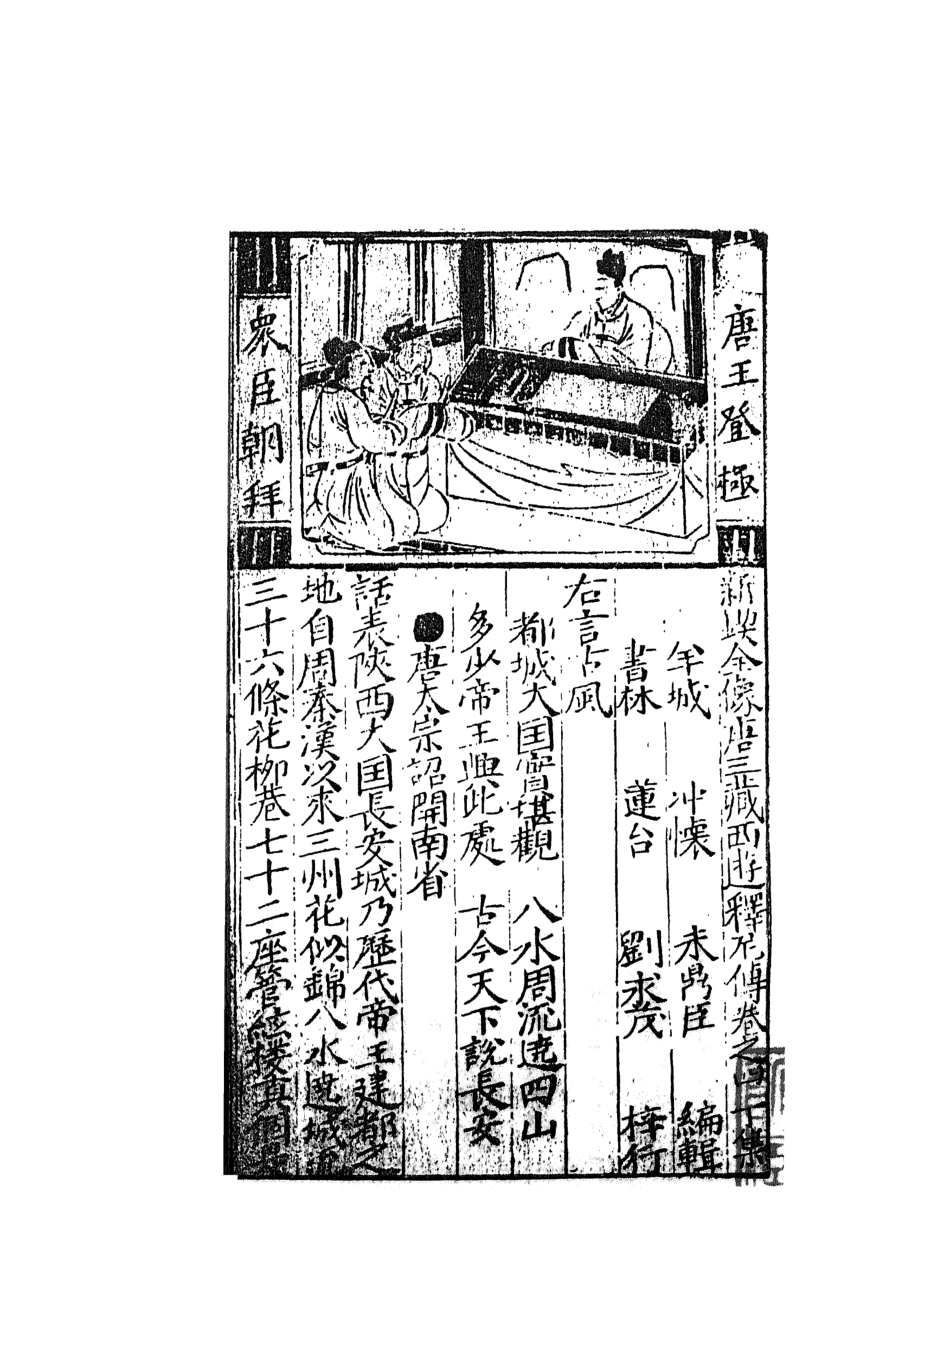 唐王登極
衆臣朝拜
新鍥全像唐三藏西遊釋厄傳卷之 下集
羊城 冲懷 朱鼎臣 編輯
書林 蓮台 劉求茂 梓行
右言古風
都城大国實堪觀 八水周流遶四山
多少帝王興此處 古今天下說長安
●唐太宗詔開南省
話表陝西大国長安城乃歷代帝王建都之
地自周秦漢以來三州花似錦八水遶城流
三十六條花柳巷七十二座管絃樓真個